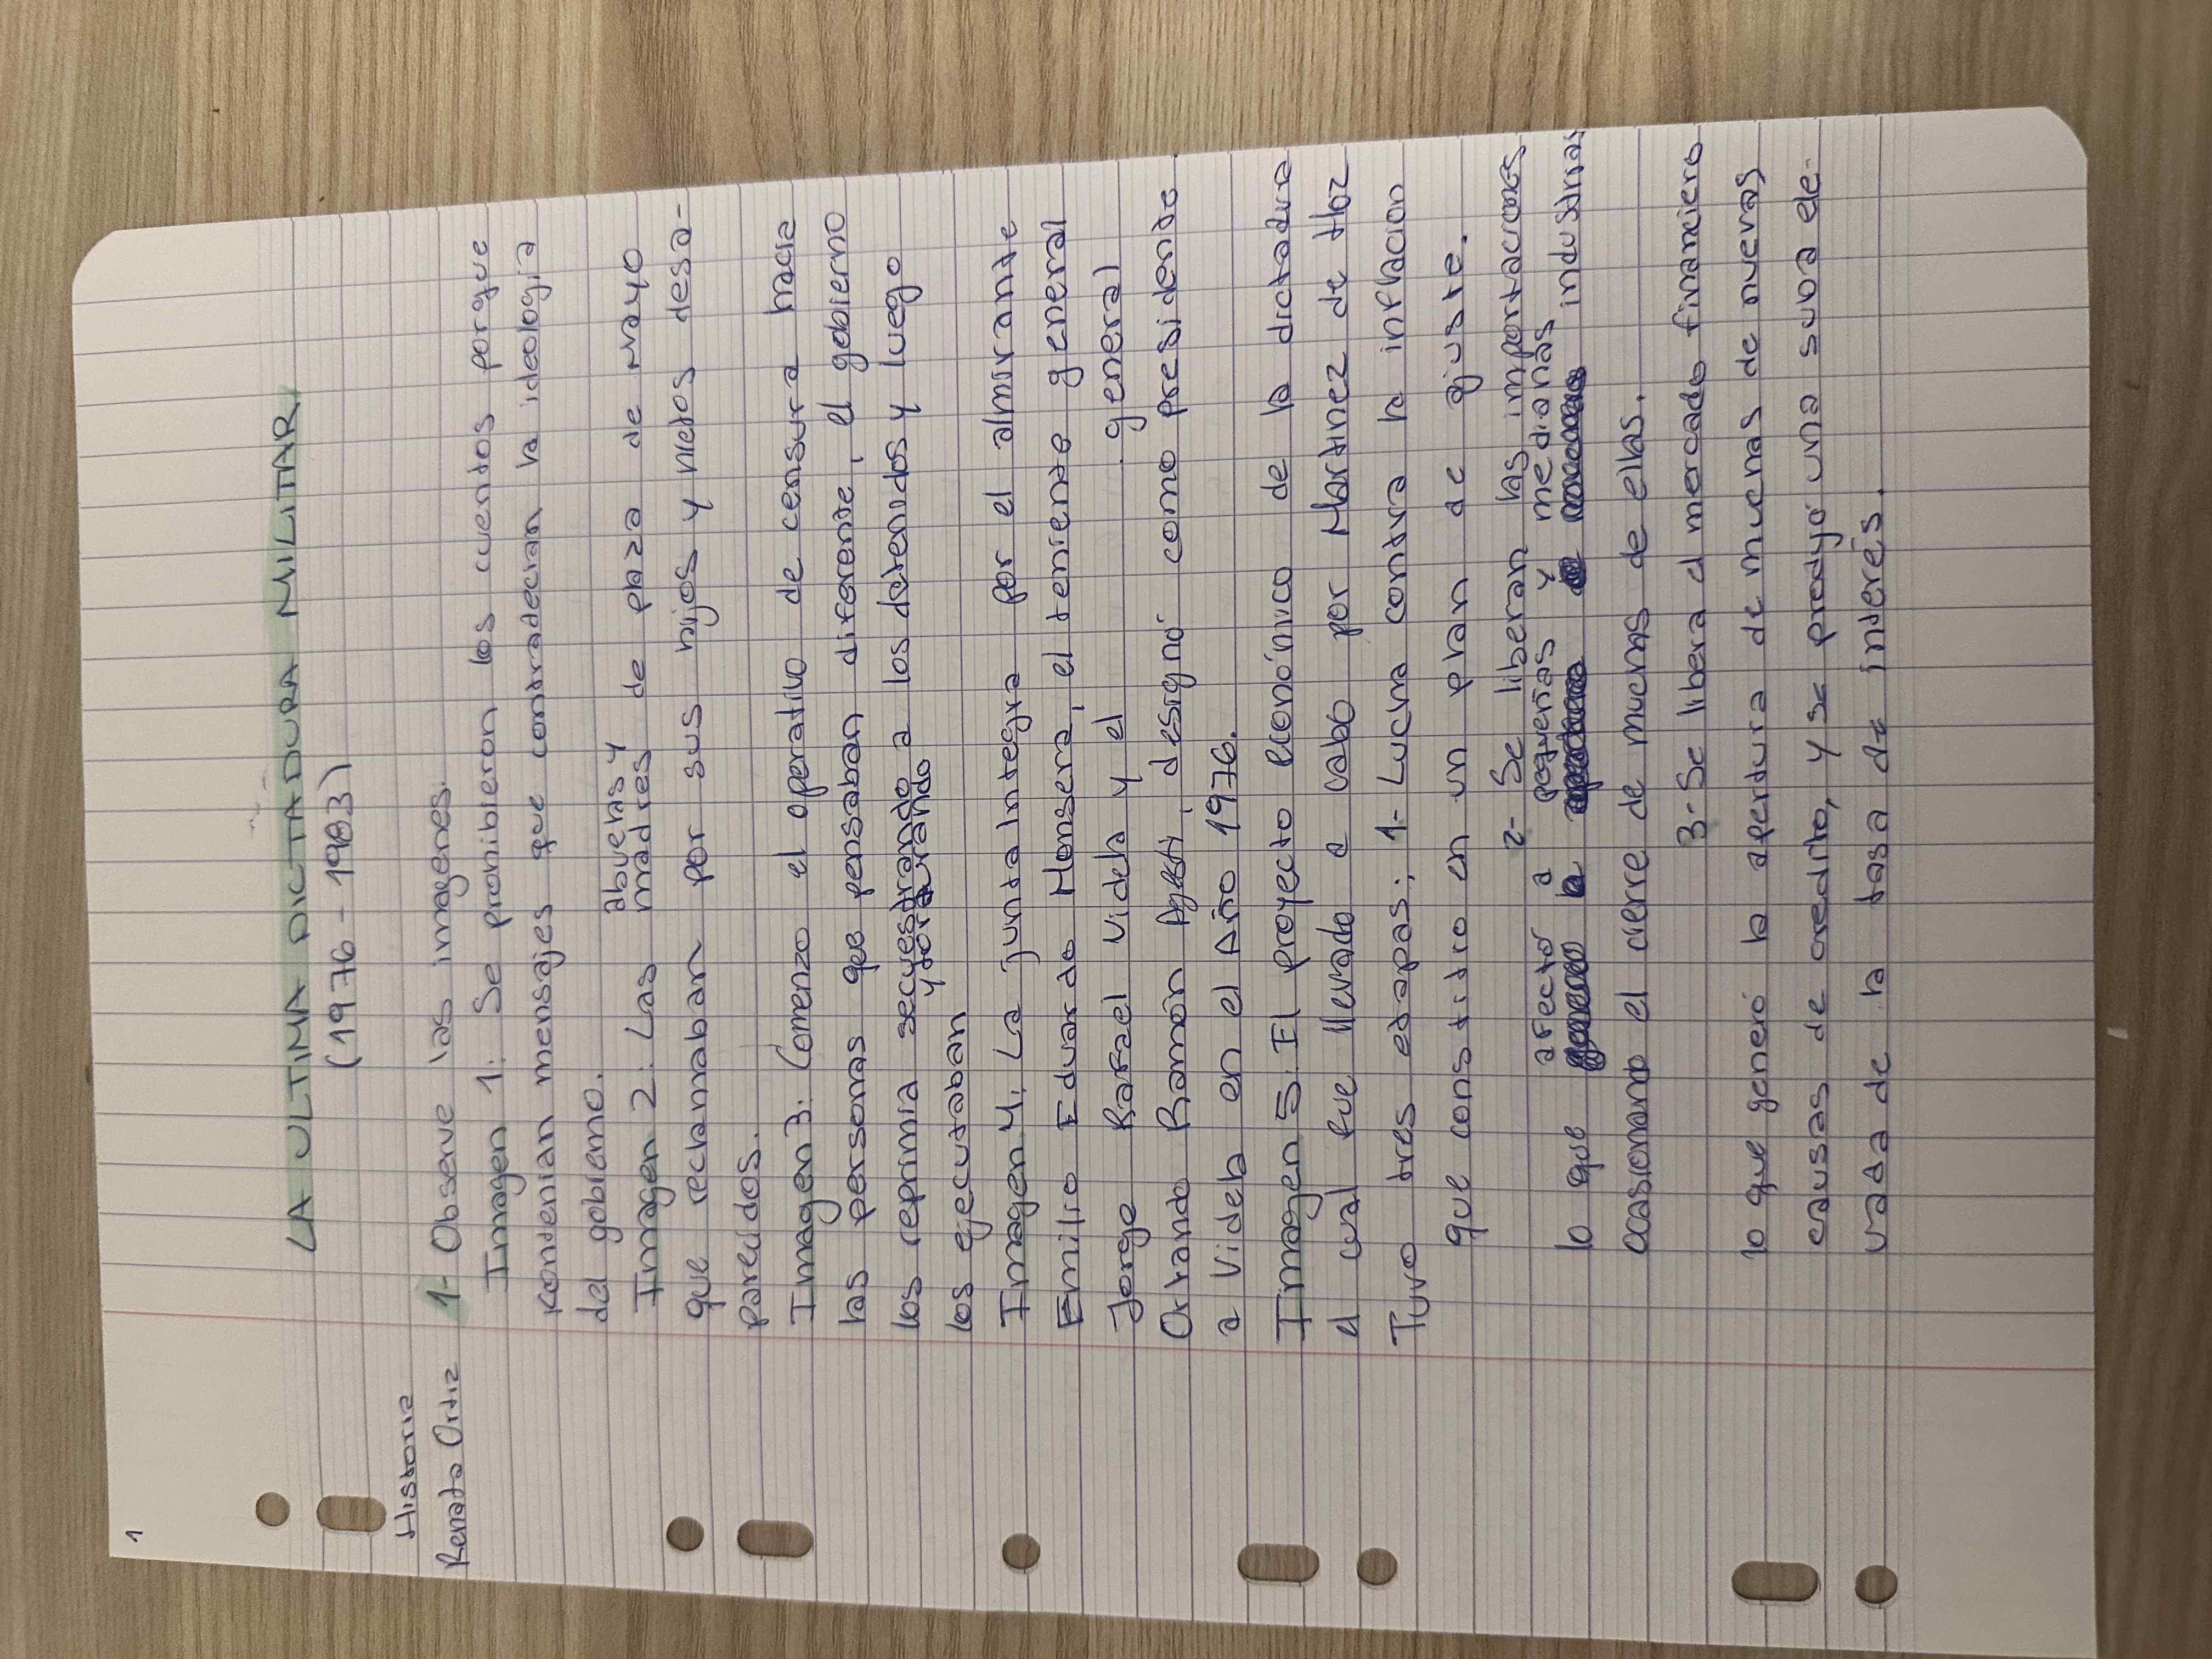 1
LA ULTIMA DICTADURA MILITAR
(1976 - 1983)
Historia
Renata Ortiz
1- Observe las imagenes.
Imagen 1: Se prohibieron los cuentos porque
contenian mensajes que contradecian la ideologia
del gobierno.
abuelas y
Imagen 2: Las madres de plaza de mayo
que reclamaban por sus hijos y nietos desa-
parecidos.
Imagen 3: Comenzo el operativo de censura hacia
las personas que pensaban diferente, el gobierno
los reprimia secuestrando a los detenidos y luego
y torturando
los ejecutaban
Imagen 4: La junta integra por el almirante
Emilio Eduardo Monsera, el teniente general
Jorge Rafael Videla y el general
Orlando Ramón Agosti, designó como presidente
a Videla en el Año 1976.
Imagen 5: El proyecto económico de la dictadura
el cual fue llevado a cabo por Martinez de Hoz
Tuvo tres etapas: 1- Lucha contra la inflacion
que constitro en un plan de ajuste.
2- Se liberan las importaciones
afectó a pequeñas y medianas
lo que industrias
ocasionano el cierre de muchas de ellas.
3- Se libera el mercado financiero
lo que generó la apertura de muchas de nuevas
causas de credito, y se produjo una suba ele-
vada de la tasa de interés.